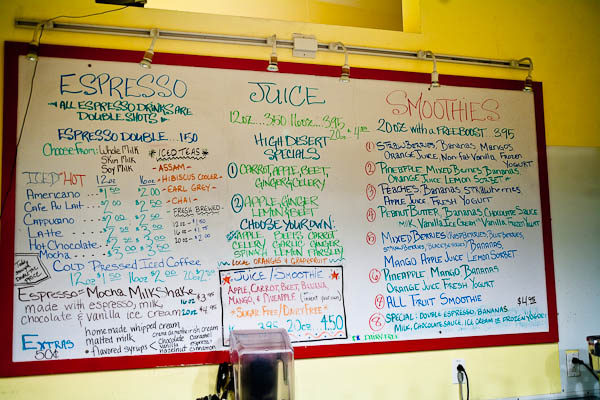 ESPRESSO
ALL ESPRESSO DRINKS ARE
DOUBLE SHOTS
ESPRESSO DOUBLE...1.50
Choose From: Whole Milk
Skim Milk
Soy Milk
ICED HOT
12oz 16oz
Americano
Cafe Au Lait
Cappucino
Latte
Hot Chocolate
Mocha
ICED TEAS
- ASSAM -
- HIBISCUS COOLER -
- EARL GREY -
- CHAI -
FRESH BREWED
COLD PRESSED ICED COFFEE
12oz $1.50 16oz $2.00 20oz
ESPRESSO MOCHA MILK SHAKE
made with espresso, milk
chocolate & vanilla ice cream
EXTRAS
50¢
homemade whipped cream
malted milk
flavored syrups
Irish cream
Chocolate Caramel
Vanilla
hazelnut cinnamon
JUICE
12oz...3.50 16oz...3.95
20oz
HIGH DESERT
SPECIALS
1 CARROT, APPLE, BEET,
GINGER & CELERY
2 APPLE, GINGER
LEMON & BEET
CHOOSE YOUR OWN:
APPLE BEETS CARROT
CELERY GARLIC GINGER
LEMON PARSLEY
LOCAL ORANGES & GRAPEFRUIT
JUICE/SMOOTHIE
APPLE, CARROT, BEET, BANANA,
MANGO, & PINEAPPLE
SUGAR FREE/DAIRY FREE
3.95 20oz 4.50
SMOOTHIES
20oz with a FREE BOOST 3.95
1 STRAWBERRIES, BANANAS, MANGOS
ORANGE JUICE, Non-Fat Vanilla, Frozen
YOGURT
2 PINEAPPLE MIXED BERRIES, BANANAS
ORANGE JUICE LEMON SORBET
3 PEACHES, BANANAS STRAWBERRIES
APPLE JUICE FROZEN YOGURT
4 PEANUT BUTTER, BANANAS CHOCOLATE SAUCE
MILK VANILLA ICE CREAM or VANILLA FROZEN YOGURT
5 MIXED BERRIES (RASPBERRIES, BLUEBERRIES,
STRAWBERRIES, BLACKBERRIES) BANANAS
MANGO APPLE JUICE LEMON SORBET
6 PINEAPPLE MANGO BANANAS
ORANGE JUICE FROZEN YOGURT
7 ALL FRUIT SMOOTHIE
8 SPECIAL: DOUBLE ESPRESSO, BANANAS
MILK, CHOCOLATE SAUCE, ICE CREAM or FROZEN YOGURT